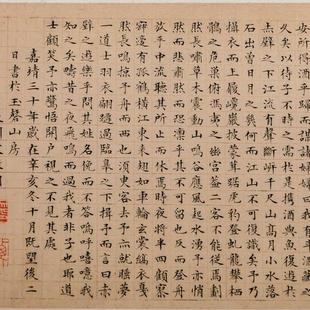 安所得酒乎歸而謀諸婦婦曰我有斗酒藏之
久矣以待子不時之需於是攜酒與魚復遊於
赤壁之下江流有聲斷岸千尺山高月小水落
石出曾日月之幾何而江山不可復識矣予乃
攝衣而上履巉巖披蒙茸踞虎豹登虬龍攀栖
鶻之危巢俯馮夷之幽宮蓋二客不能從焉劃
然長嘯草木震動山鳴谷應風起水涌予亦悄
然而悲肅然而恐凜乎其不可留也反而登舟
放乎中流聽其所止而休焉時夜將半四顧寂
寥適有孤鶴橫江東來翅如車輪玄裳縞衣戛
然長鳴掠予舟而西也須臾客去予亦就睡夢
一道士羽衣翩躚過臨皋之下揖予而言曰赤
壁之遊樂乎問其姓名俛而不答嗚呼噫嘻我
知之矣疇昔之夜飛鳴而過我者非子也耶道
士顧笑予亦驚悟開戶視之不見其處
嘉靖三十年歲在辛亥冬十月既望後二
日書於玉磬山房